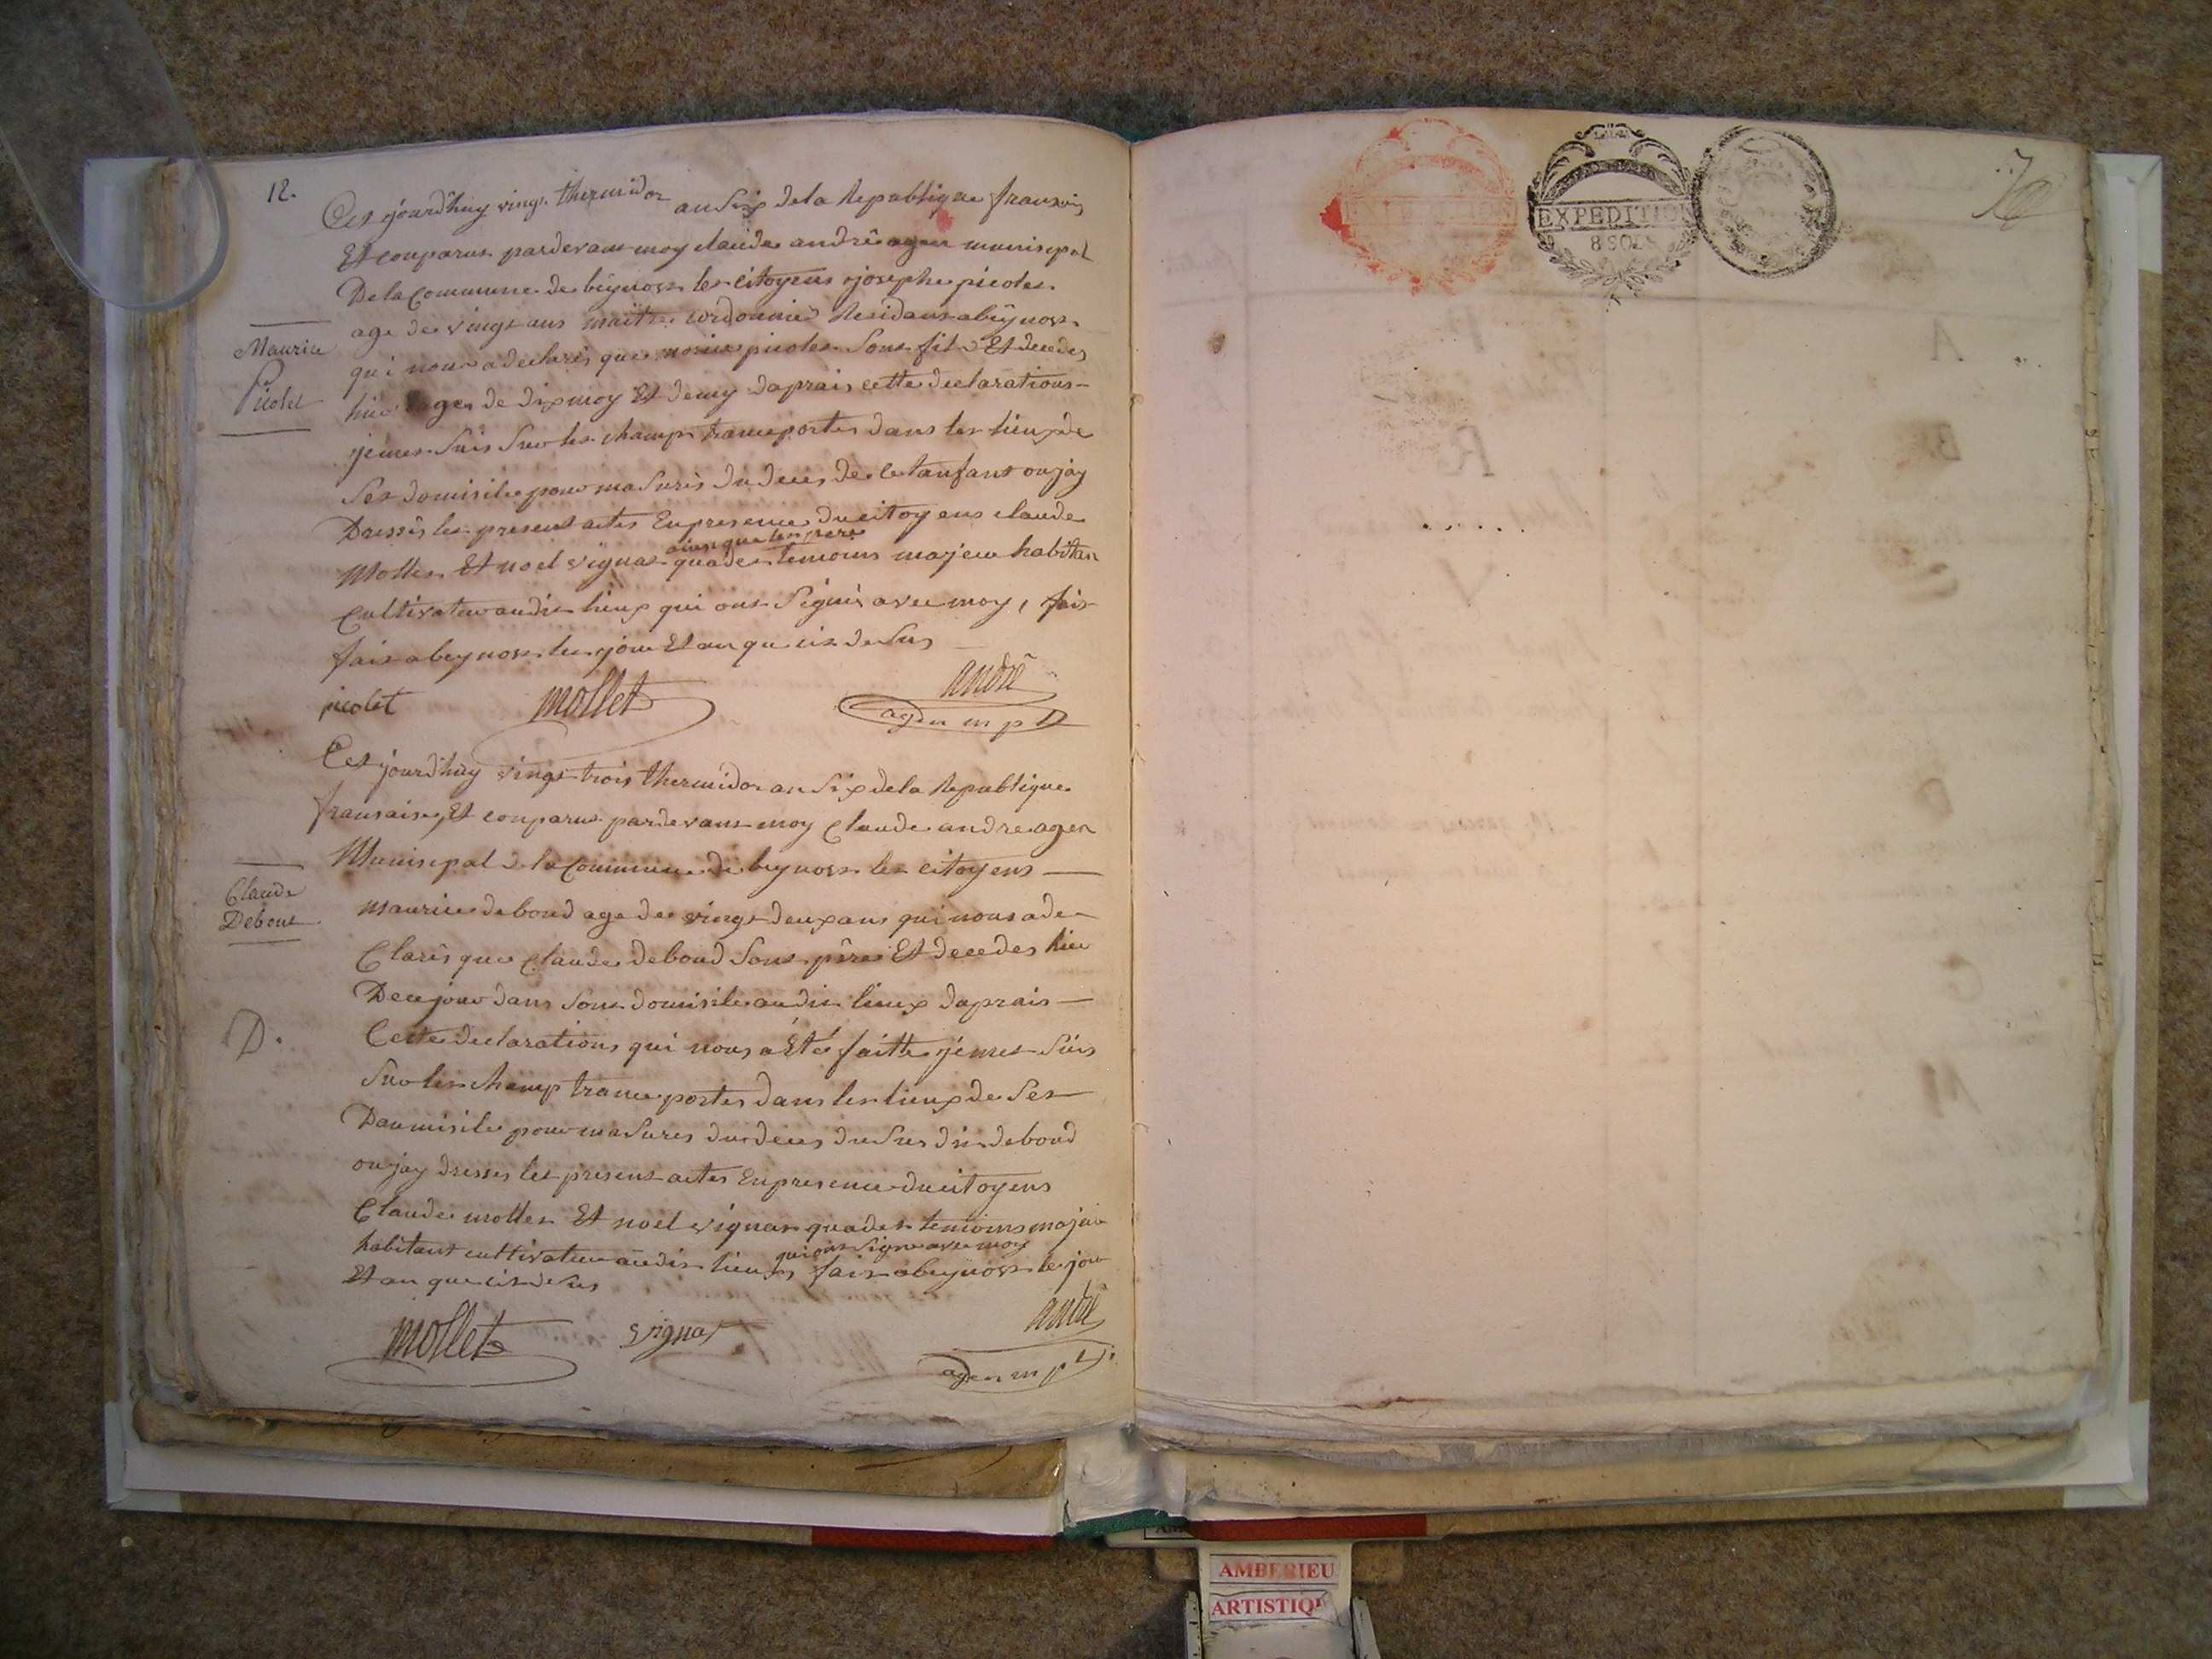 12.
Cet jourdhuy vingt thermidor an six de la Republique fransois
Et conparut pardevant moy claude andrê agen munisipal
De la Commune de beynost les citoyens josephe picotes
age de vingt ans maitre cordonnié Residant a beynost
qui nous a declarés que morice picotes Sont fils Et decedes
hier ages de dix moy Et demy daprais cette declarations
je mes Suis Sur les champ transportes dans les lieux de
Ses domisile pour masurés du deces de cet anfant ou jay
Dressês les present actes En presence du citoyens claude
ainsi que les pere
Mollet Et noel vignat quades temoins majeur habitan
Cultivateur au dit lieux qui ont Signés avec moy, fait
fait a beynost les jour Et an que cit desus
Maurice
Picolet
picolet
mollet
andrê
agen mpal
Cet jourdhuy vingt trois thermidor an Six de la Republique
fransaise, Et conparut pardevant moy Claude andre agen
Munisipal de la Commune de beynost les citoyens
maurice deboud age de vingt deux ans qui nous a de
Clarês que Claude deboud Sont père Et decedes hier
De ce jour dans Sont domisile au dit lieux daprais
Cette declarations qui nous a Eté faitte je mes Suis
Sur les champ transportes dans les lieux de Ses
Daumisile pour masures du deces du Sus dit deboud
ou jay dresses les present actes En presence du citoyens
Claude mollet Et noel vignat quades temoins majeur
qui ont Signe avec moy
habitant cultivateur au dit lieux fait a beynost le jour
Et an que cit desus
Claude
Debout
D.
mollet
vignat
andrê
agen mpal
EXPEDITION
8 SOLS
AMBERIEU
ARTISTIQU